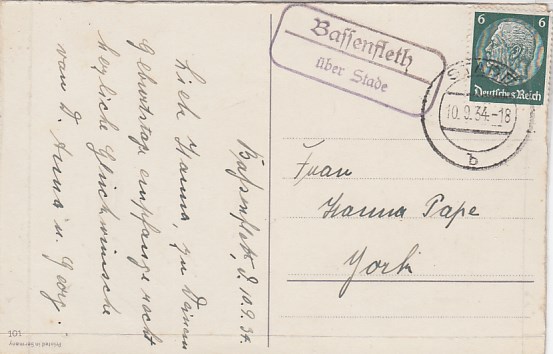 Bassenfleth
über Stade
6 6
Deutsches Reich
STADE
10.9.34.-18
b
Bassenfleth, d. 10.9.34.
Lieb Hanna, zu Deinem
Geburtstag empfange recht
herzliche Glückwünsche
von D. Anna u. Georg.
Frau
Hanna Pape
York
101
Printed in Germany